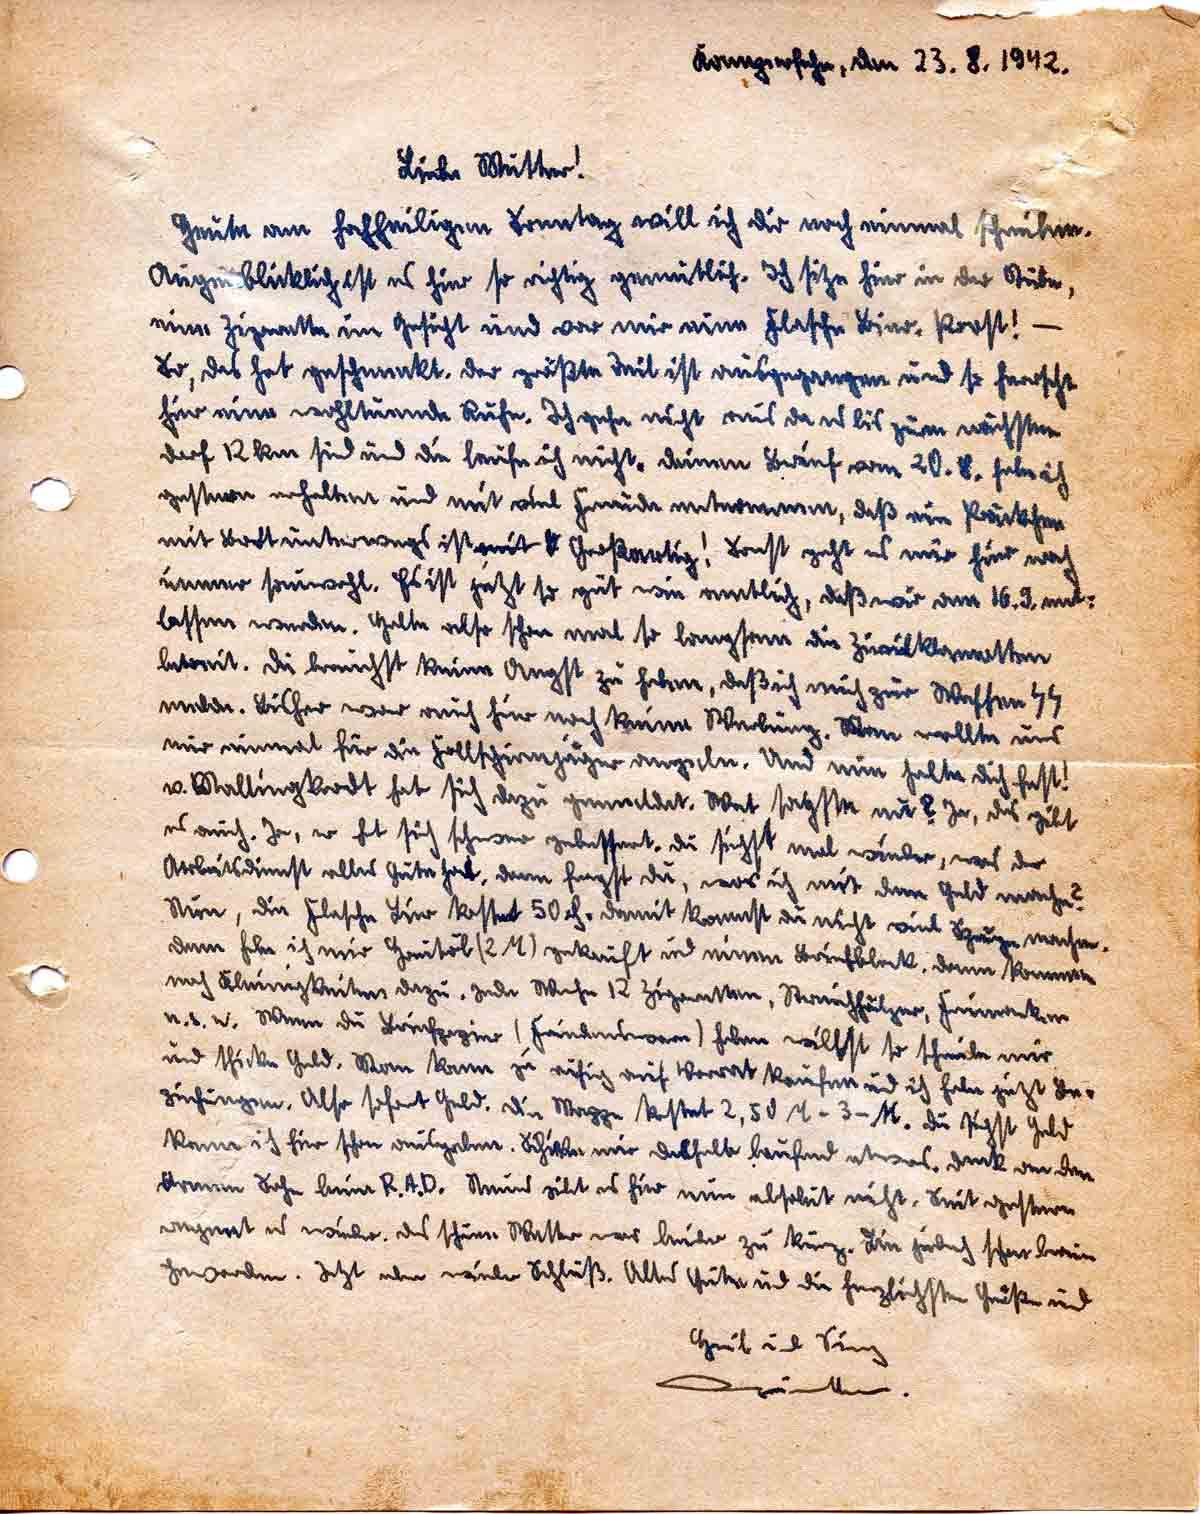 Kampierfehn, den 23. 8. 1942.
Liebe Mutter!
Heute am hochheiligen Sonntag will ich Dir noch einmal schreiben.
Augenblicklich ist es hier so richtig gemütlich. Ich sitze hier in der Stube,
eine Zigarette im Gesicht und vor mir eine Flasche Bier. Prost! —
So, das hat geschmeckt. Der größte Teil ist ausgegangen und so herrscht
hier eine wohltuende Ruhe. Ich gehe nicht aus da es bis zum nächsten
Dorf 12 km sind und die laufe ich nicht. Deinen Brief vom 20. 8. habe ich
gestern erhalten und mit viel Freude vernommen, daß ein Päckchen
mit Brot unterwegs ist Großartig! Sonst geht es mir hier noch
immer sauwohl. Es ist jetzt so gut wie amtlich, daß wir am 16. 9. ent-
lassen werden. Halte also schon mal so langsam die Zivilklamotten
bereit. Du brauchst keine Angst zu haben, daß ich mich zur Waffen SS
melde. Bisher war auch hier noch keine Werbung. Man wollte uns
nur einmal für die Fallschirmjäger angeln. Und nun halte Dich fest!
v. Mallingkrodt hat sich dazu gemeldet. Wat sagste nu? Ja, das gibt
es auch. Ja, er hat sich schwer gebessert. Du siehst mal wieder, was der
Arbeitsdienst alles Gute hat. Dann fragst Du, was ich mit dem Geld mache?
Nun, die Flasche Bier kostet 50 Pf. Damit kannst Du nicht viel Sprünge machen.
Dann habe ich mir Hautöl (2 M) gekauft und einen Briefblock. Dann kommen
noch Kleinigkeiten dazu. Jede Woche 12 Zigaretten, Streichhölzer, Freimarken
u.s.w. Wenn Du Briefpapier (Friedensware) haben willst so schreibe mir
und schicke Geld. Man kann ja ruhig auf Vorrat kaufen und ich habe jetzt Be-
ziehungen. Also sofort Geld. Die Mappe kostet 2,50 M - 3 - M. Du siehst Geld
kann ich hier schon ausgeben. Schicke mir deshalb laufend etwas. Denk an den
armen Sohn beim R.A.D. Neues gibt es hier nun absolut nicht. Seit gestern
regnet es wieder. Das schöne Wetter war leider zu kurz. Bin jedoch schon braun
geworden. Jetzt aber wieder Schluß. Alles Gute und die herzlichsten Grüße und
Heil und Sieg
Günther.